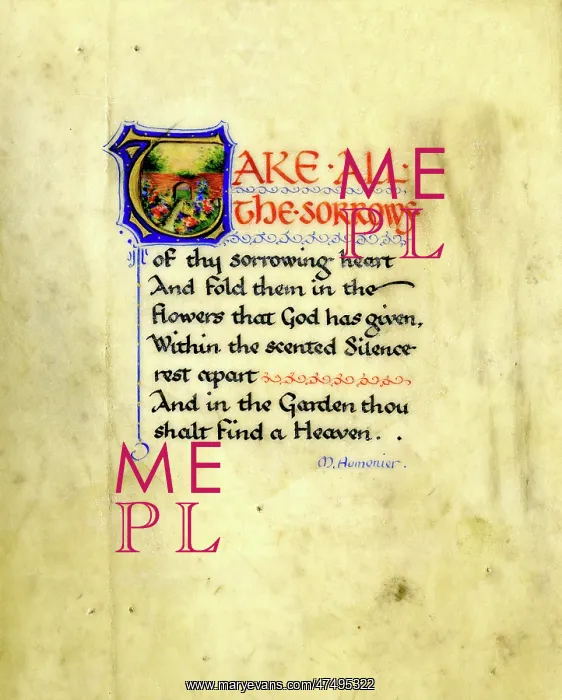 TAKE · ALL ·
the · sorrows
of thy sorrowing heart
And fold them in the
flowers that God has given,
Within the scented Silence
rest apart
And in the Garden thou
shalt find a Heaven . .
M. Aumonier .
ME
PL
ME
PL
www.maryevans.com/47495322